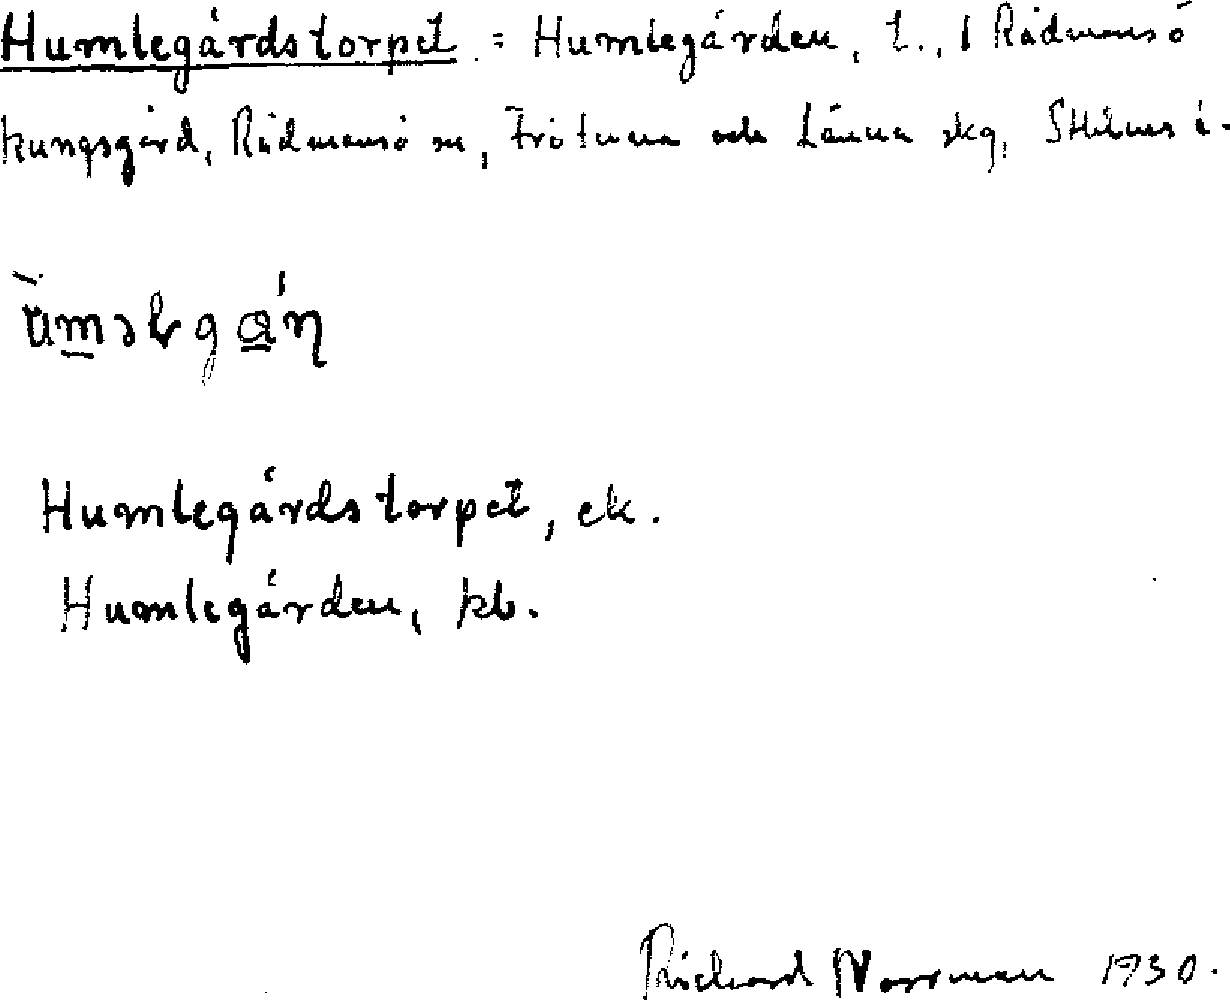 Humlegårdstorpet = Humlegården, t., 1 Rådmansö
kungsgård, Rådmansö sn, Frötuna och Länna skg, Sthlms l.
Humlegårdstorpet, ek.
Humlegården, kb.
Richard Norrman 1930.